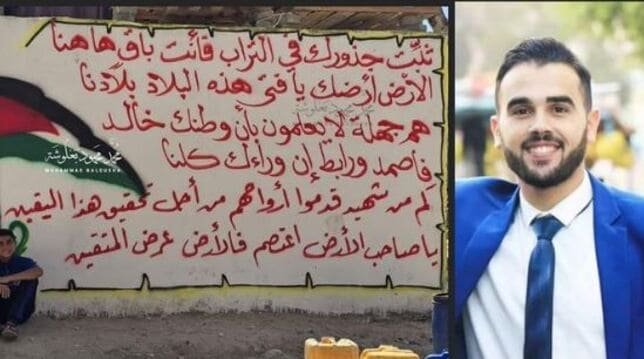 ثبّت جذورك في التراب فأنت باقٍ هاهنا
الأرض أرضك يا فتى هذه البلاد بلادنا
هم جهلة لا يعلمون بأن وطنك خالد
فاصمد ورابط إن وراءك كلنا
كم من شهيد قدموا أرواحهم من أجل تحقيق هذا اليقين
يا صاحب الأرض اعتصم فالأرض عرض المتقين
محمد محمود بعلوشة
MUHAMMAD BALOUSHA